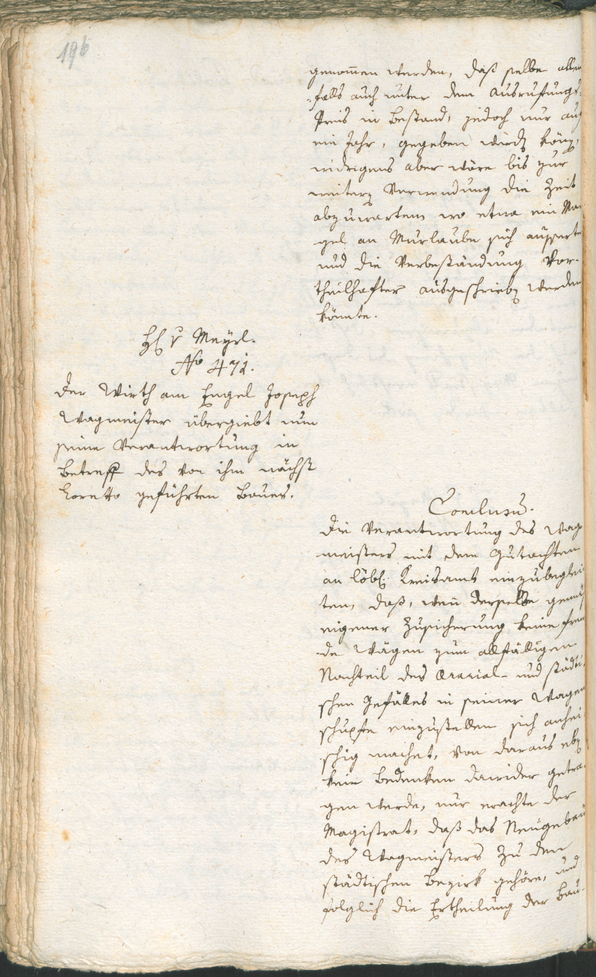 196
genommen werden, daß selbe allen
falls auch unter dem Ausrufungs
Preis in Bestand, jedoch nur auf
ein Jahr, gegeben werden könn,
widrigens aber wäre bis zur
weitern Verwendung die Zeit
abzuwarten wo etwa ein Man
gel an Mürlaube sich äusserte
und die Verbeständung vor-
theilhafter ausgeschrieben werden
könnte.
H. v Meyrl.
No 471.
Der Wirth am Engel Joseph
Wagmeister übergiebt nun
seine Verantwortung in
Betreff des von ihm nächst
Loretto geführten Baues.
Conclusum.
Die Verantwortung des Wag
meisters mit dem Gutachten
an löbl. Kreisamt einzubeglei
ten, daß, wenn derselbe gemäß
eigener Zusicherung keine frem
de Wägen zum allfälligen
Nachteil des Ararial- und städti
schen Gefälles in seiner Wagen
schupfe einzustellen sich anhei
schig machet, von daraus eben
kein Bedenken darwider getra
gen werde, nur erachte der
Magistrat, daß das Neugebäu
des Wagmeisters zu dem
städtischen Bezirk gehöre, und
folglich die Ertheilung der Bau-